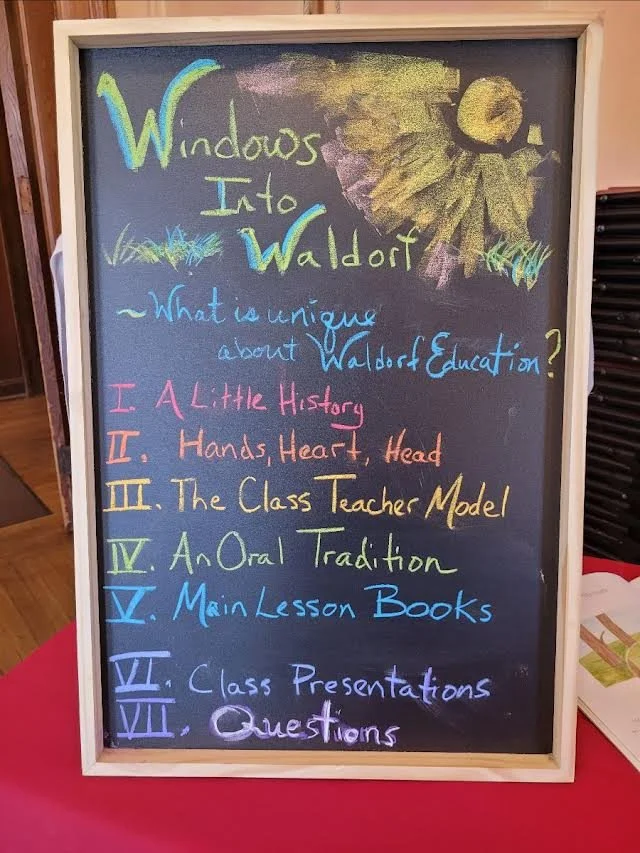 Windows
Into
Waldorf
~What is unique
about Waldorf Education?
I. A Little History
II. Hands, Heart, Head
III. The Class Teacher Model
IV. An Oral Tradition
V. Main Lesson Books
VI. Class Presentations
VII. Questions